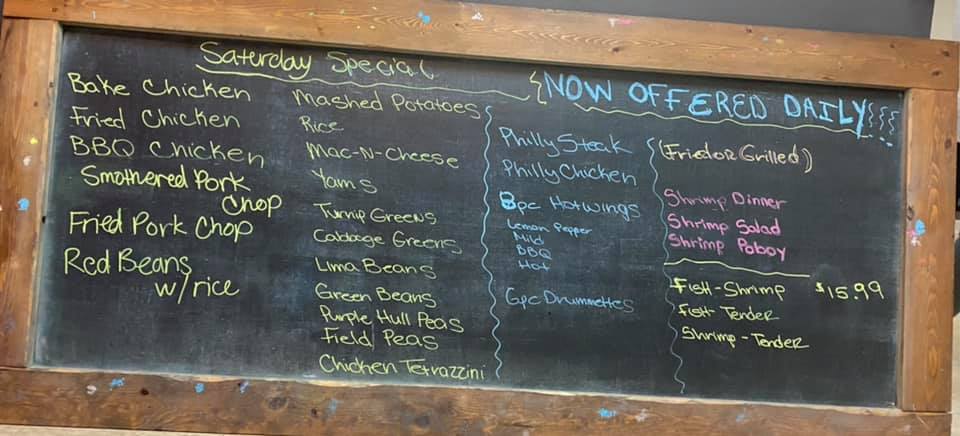 Saturday Special
Bake Chicken
Fried Chicken
BBQ Chicken
Smothered Pork
Chop
Fried Pork Chop
Red Beans
w/rice
Mashed Potatoes
Rice
Mac-N-Cheese
Yams
Turnip Greens
Cabbage Greens
Lima Beans
Green Beans
Purple Hull Peas
Field Peas
Chicken Tetrazzini
NOW OFFERED DAILY!!!
Philly Steak
Philly Chicken
8pc Hotwings
Lemon Pepper
Mild
BBQ
Hot
6pc Drummettes
(Fried or Grilled)
Shrimp Dinner
Shrimp Salad
Shrimp Poboy
Fish-Shrimp $15.99
Fish-Tender
Shrimp-Tender